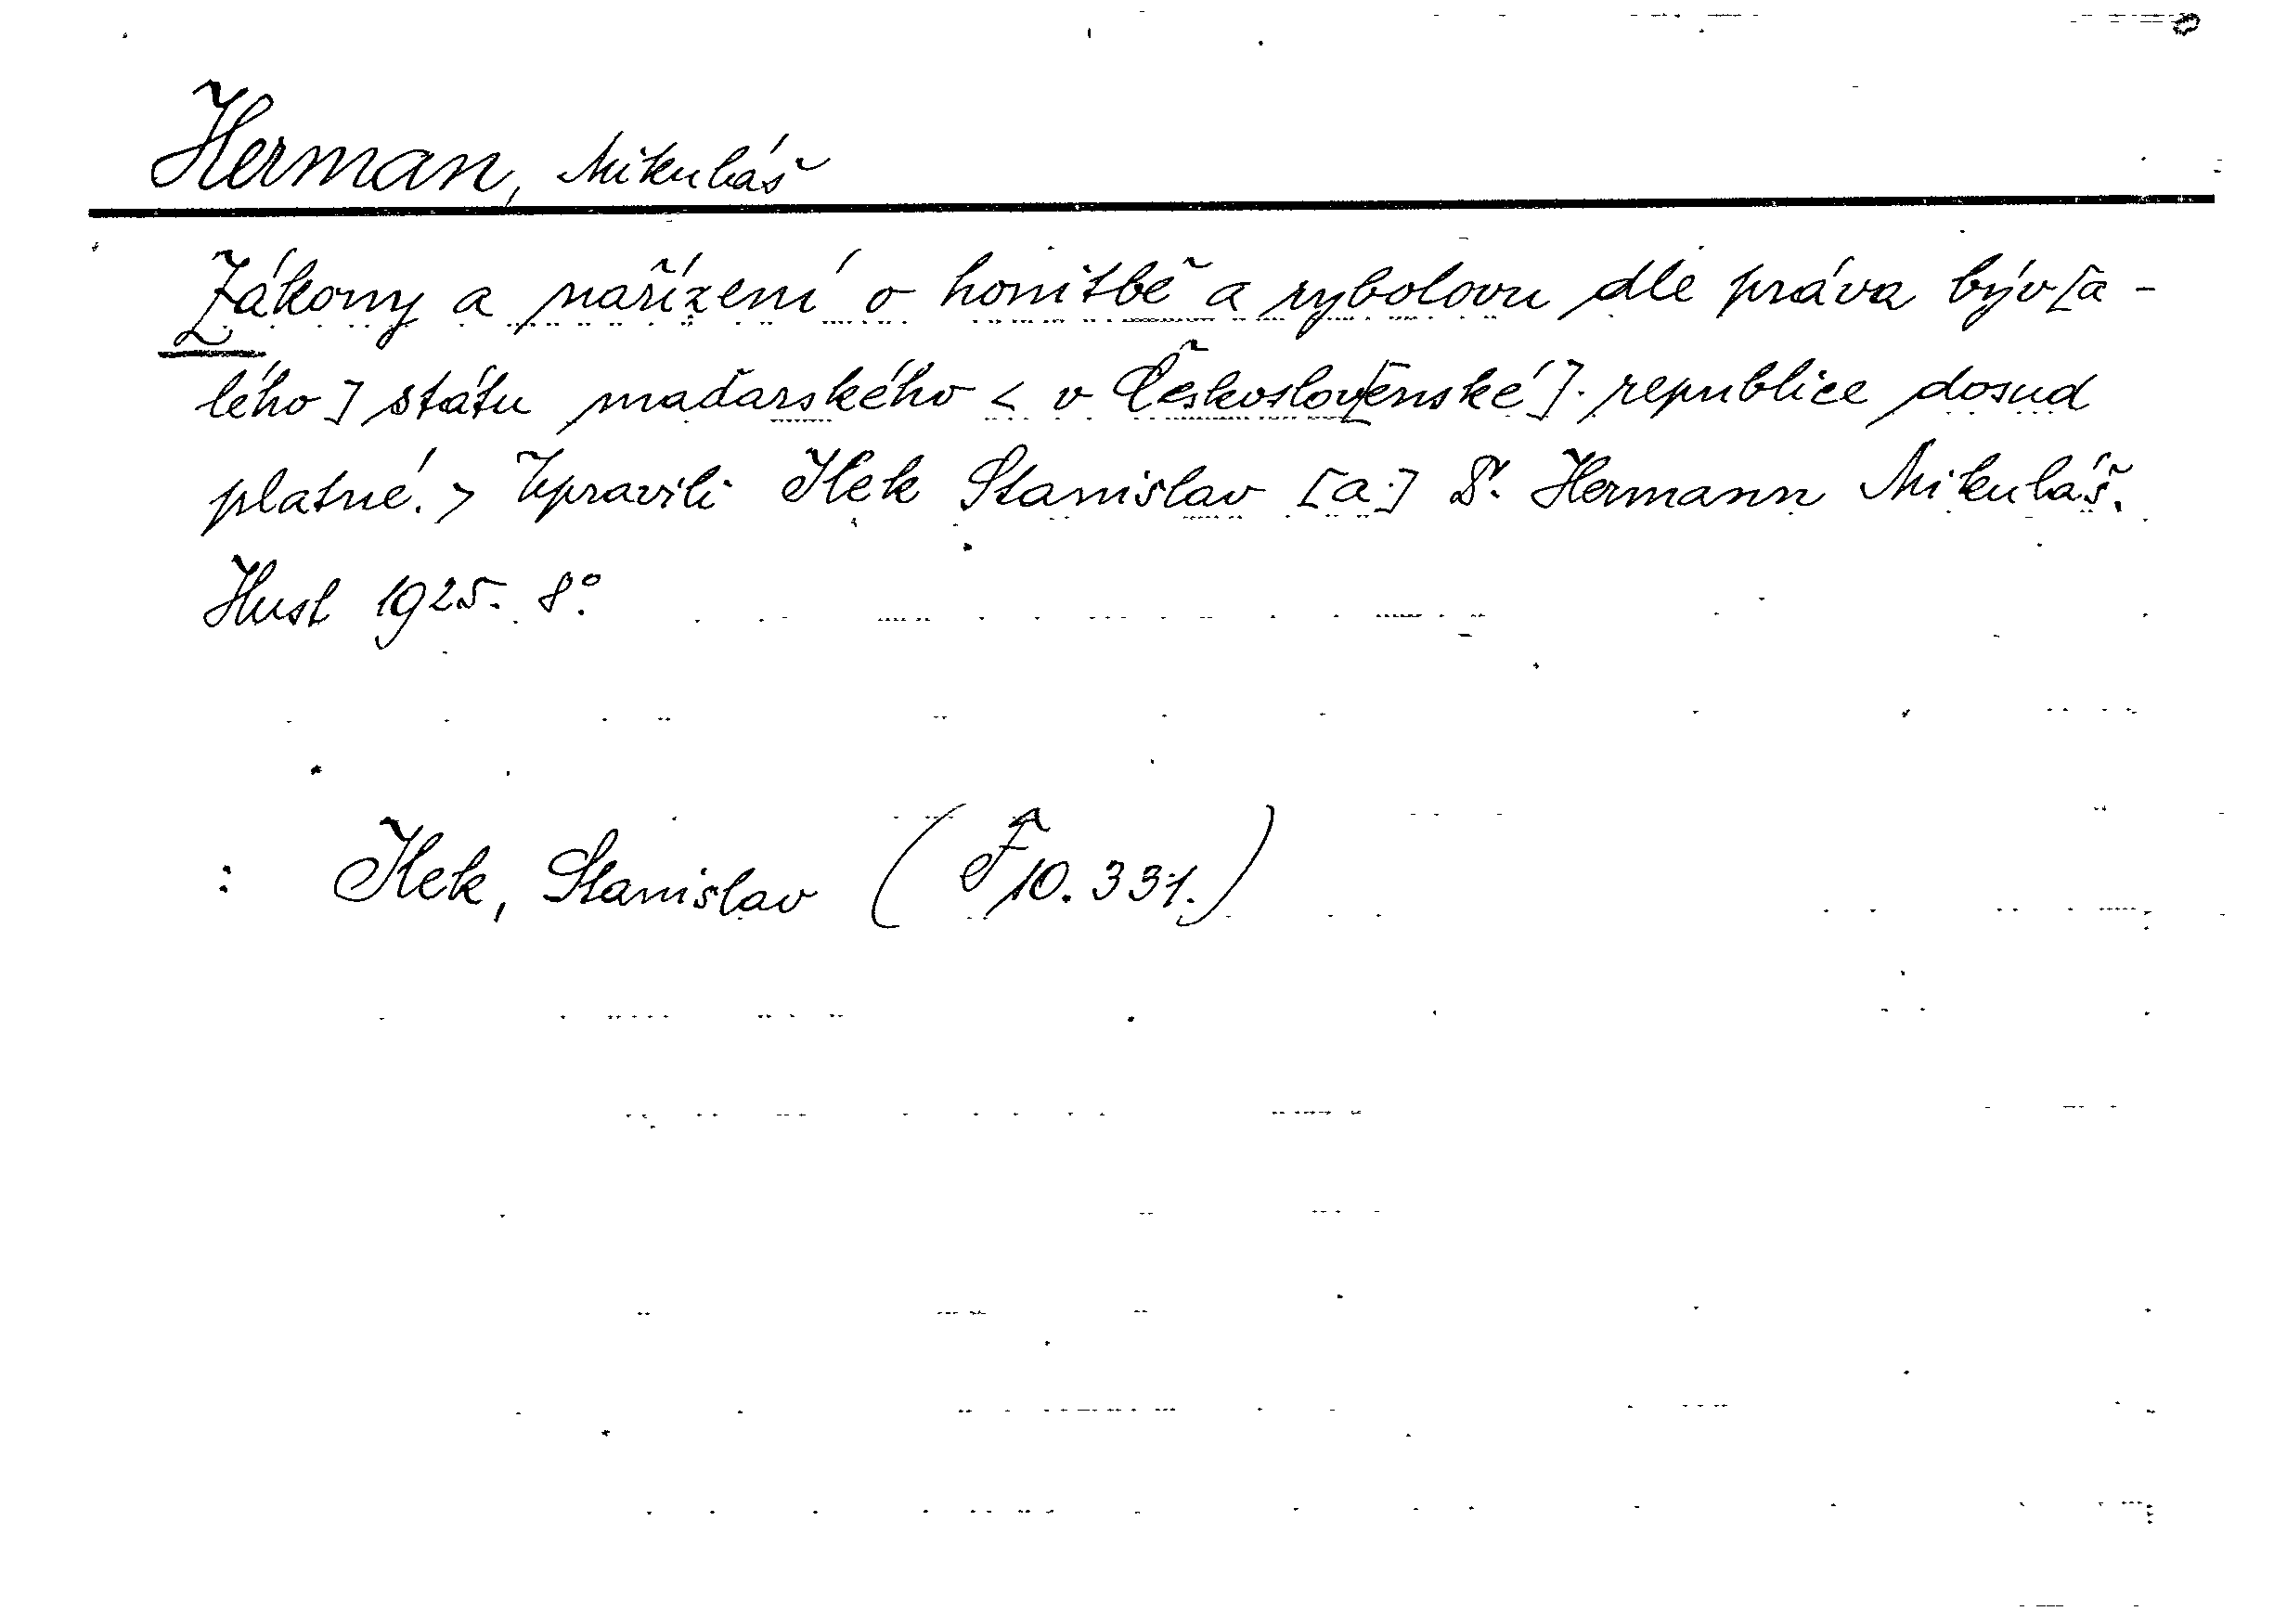 Herman, Mikuláš
Zákony a nařízení o honitbě a rybolovu dle práva býv[a-
lého] státu maďarského < v Českoslov[enské]. republice dosud
platné. > Upravili Hek Stanislav [a] Dr. Hermann Mikuláš.
Hust 1925. 8°.
: Hek, Stanislav ( F 10.331. )